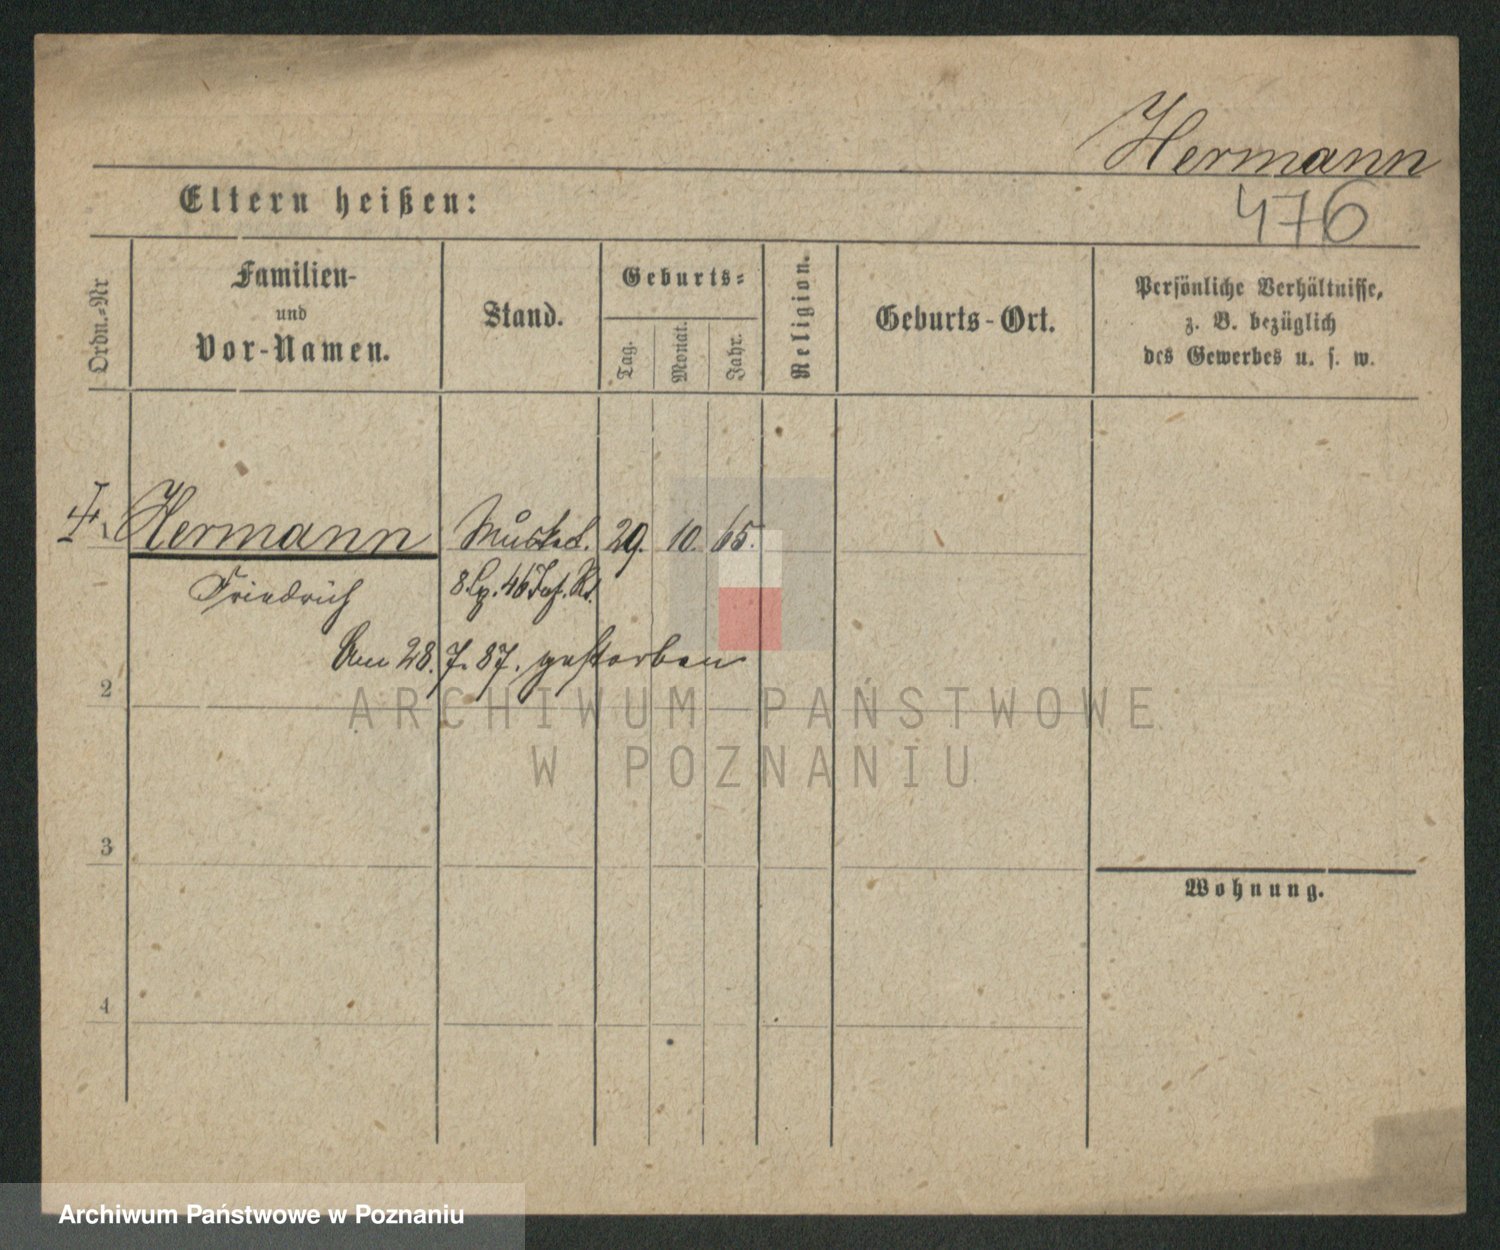 Hermann
476
Eltern heißen:
Ordn.-Nr
Familien-
und
Vor-Namen.
Stand.
Geburts-
Tag.
Monat.
Jahr.
Religion.
Geburts-Ort.
Persönliche Verhältnisse,
z. B. bezüglich
des Gewerbes u. s. w.
1 Hermann Musket. 29. 10. 65.
Friedrich 8 Cp. 46 Inf. Rt.
Am 28. 7. 87. gestorben
2
ARCHIWUM PAŃSTWOWE
W POZNANIU
3
Wohnung.
4
Archiwum Państwowe w Poznaniu